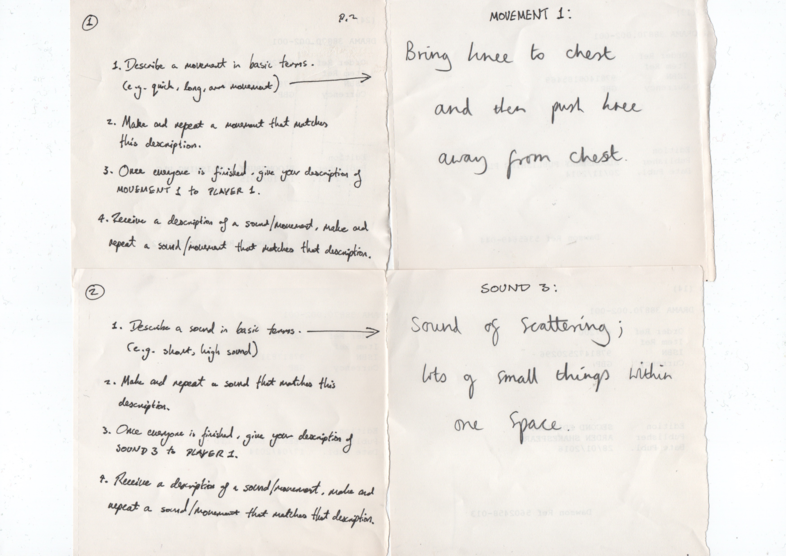 1
P.2
1. Describe a movement in basic terms.
(e.g. quick, long, arm movement)
2. Make and repeat a movement that matches
this description.
3. Once everyone is finished, give your description of
MOVEMENT 1 to PLAYER 1.
4. Receive a description of a sound/movement, make and
repeat a sound/movement that matches that description.
MOVEMENT 1:
Bring knee to chest
and then push knee
away from chest.
2
1. Describe a sound in basic terms.
(e.g. short, high sound)
2. Make and repeat a sound that matches this
description.
3. Once everyone is finished, give your description of
SOUND 3 to PLAYER 1.
4. Receive a description of a sound/movement, make and
repeat a sound/movement that matches that description.
SOUND 3:
Sound of scattering;
lots of small things within
one space.